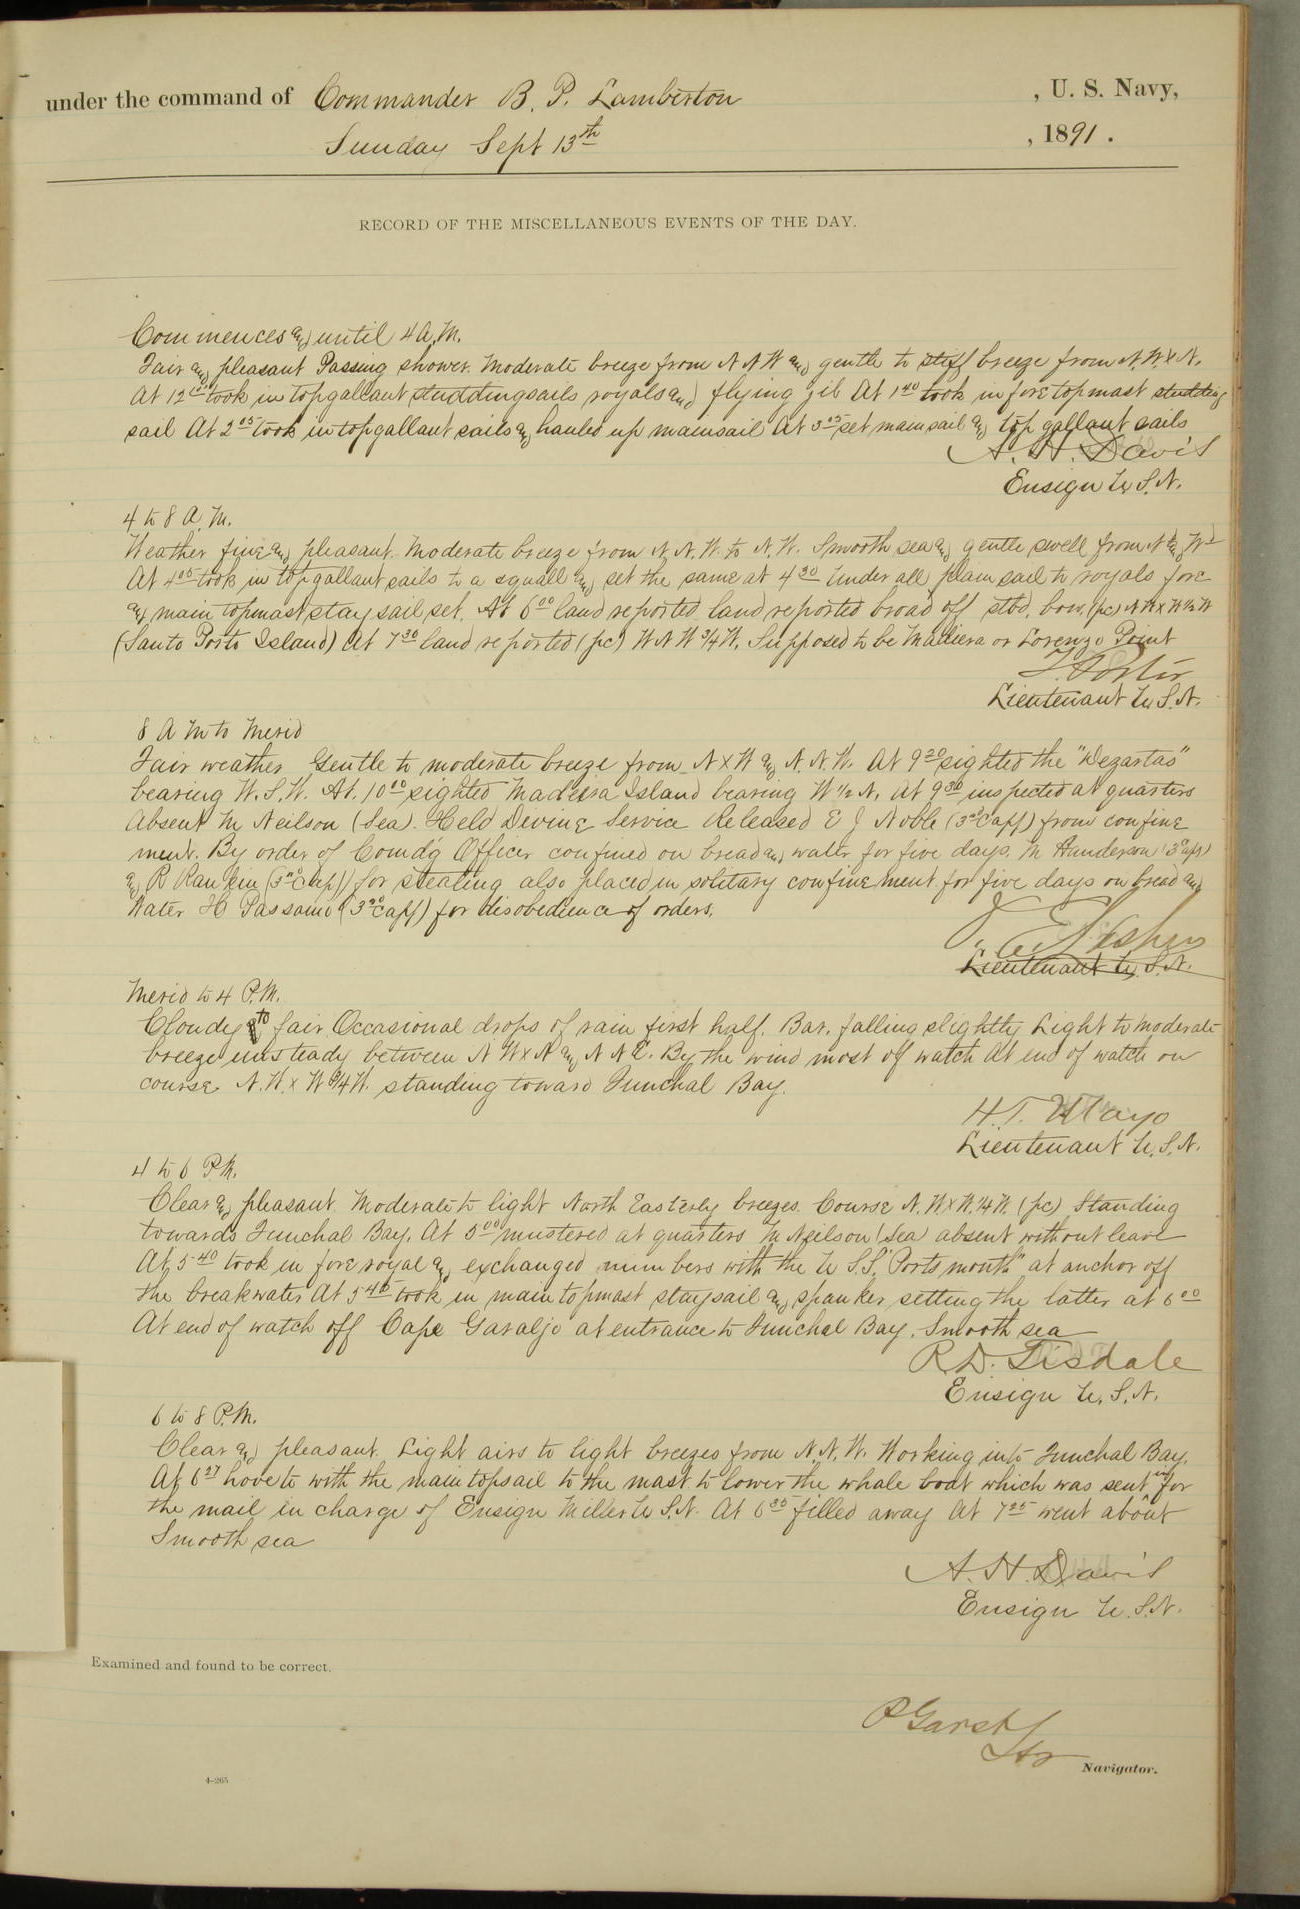 under the command of Commander B. P. Lamberton , U. S. Navy,
Sunday Sept 13th , 1891.
RECORD OF THE MISCELLANEOUS EVENTS OF THE DAY.
Commences and until 4 A.M.
Fair and pleasant Passing shower. Moderate breeze from N N W and gentle to stiff breeze from N.W.x N.
At 12 took in topgallant studdingsails royals and flying jib At 1 40 took in fore topmast studding
sail At 2 05 took in topgallant sails and hauled up mainsail At 3 05 set mainsail and top gallant sails
A. H. Davis
Ensign U.S.N.
4 to 8 A.M.
Weather fine and pleasant. Moderate breeze from N.N.W. to N.W. Smooth sea and gentle swell from N & Wd
At 4 05 took in topgallant sails to a squall and set the same at 4 30 Under all plain sail to royals fore
and main topmast staysail set. At 6 00 land reported land reported broad off stbd. bow. (pc) N W x W ½ W
(Santo Porto Island) At 7 30 land reported (pc) W N W ¾ W. Supposed to be Madiera or Lorenzo Point
Lieutenant U.S.N.
8 A M to Merid
Fair weather Gentle to moderate breeze from N x W and N. N. W. At 9 20 sighted the "Dezartas"
bearing W. S. W. At 10 00 sighted Madeira Island bearing W ½ N. At 9 30 inspected at quarters
Absent M Neilson (Sea). Held Devine Service Released E J Noble (3d C apf) from confine
ment. By order of Comdg Officer confined on bread and water for five days. M Handerson (3d C apf)
and R Rankin (3d C ap) for stealing also placed in solitary confinement for five days on bread and
Water H Passamo (3d C apf) for disobedience of orders.
Lieutenant U.S.N.
Merid to 4 P.M.
Cloudy to fair Occasional drops of rain first half. Bar. falling slightly Light to moderate
breeze unsteady between N W x N and N N E. By the wind most of watch At end of watch on
course N. W. x W ¾ W. standing toward Funchal Bay.
H. T. Mayo
Lieutenant U.S.N.
4 to 6 P.M.
Clear and pleasant. Moderate to light North Easterly breezes. Course N. W x W. ¼ W. (pc) Standing
towards Funchal Bay. At 5 00 mustered at quarters M Neilson (Sea) absent without leave
At 5 40 took in fore royal and exchanged numbers with the U S.S. "Portsmouth" at anchor off
the breakwater At 5 45 took in main topmast staysail and spanker setting the latter at 6 00
At end of watch off Cape Garaljo at entrance to Funchal Bay. Smooth sea
R. D. Tisdale
Ensign U.S.N.
6 to 8 P.M.
Clear and pleasant. Light airs to light breezes from N.N.W. Working into Funchal Bay.
At 6 27 hove to with the main topsail to the mast to lower the whale boat which was sent in for
the mail in charge of Ensign Miller U S.N. At 6 35 filled away At 7 25 went about
Smooth sea
A. H. Davis
Ensign U.S.N.
Examined and found to be correct.
P Garst
Navigator.
4-265